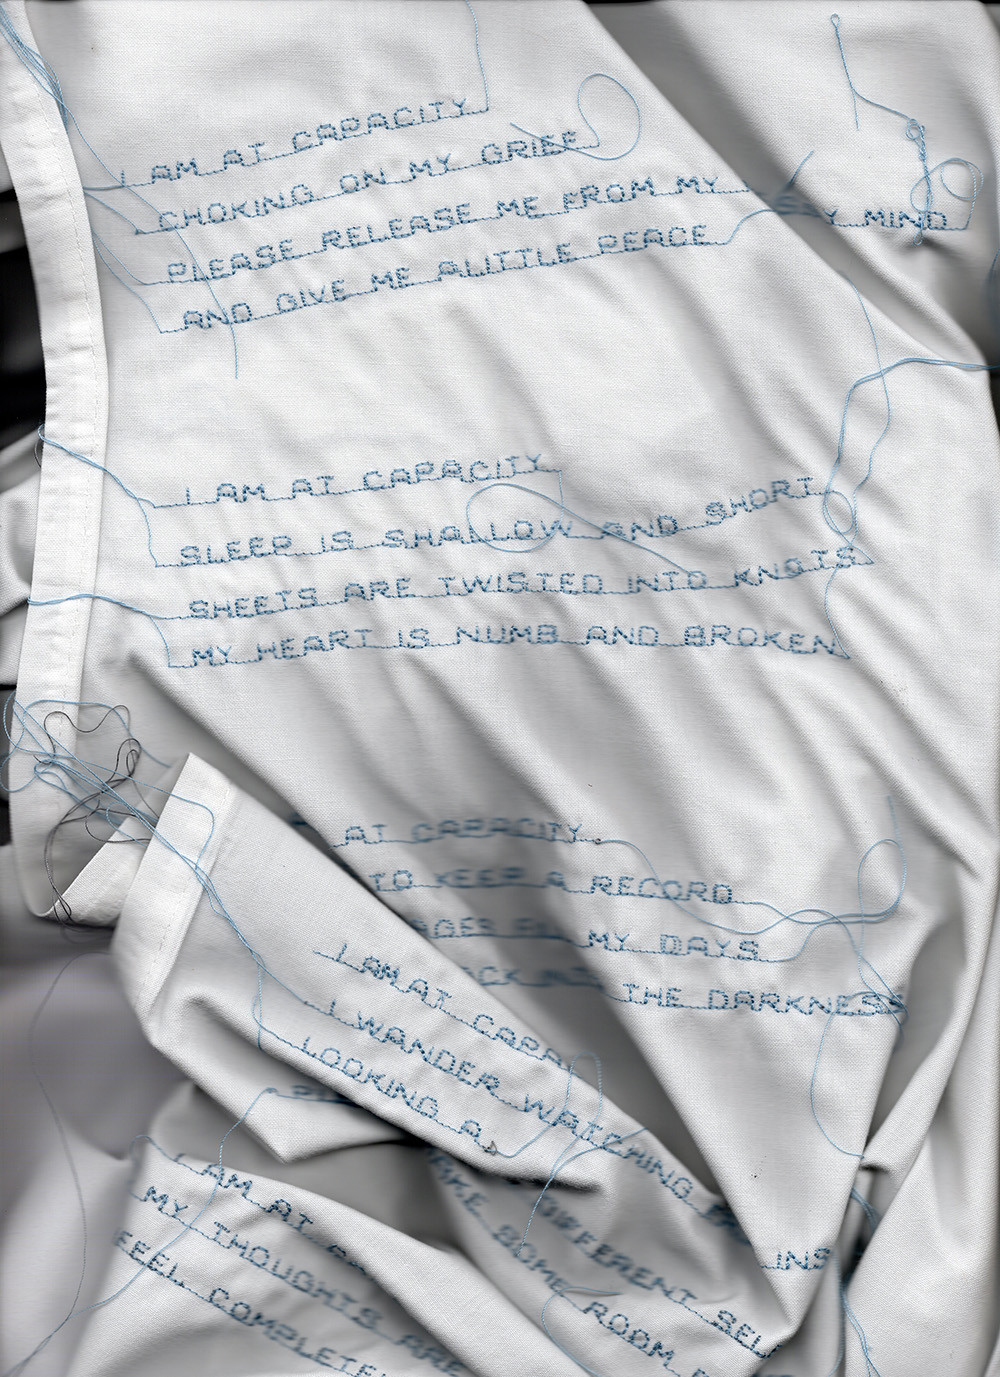 I AM AT CAPACITY
CHOKING ON MY GRIEF
PLEASE RELEASE ME FROM MY MIND
AND GIVE ME A LITTLE PEACE
I AM AT CAPACITY
SLEEP IS SHALLOW AND SHORT
SHEETS ARE TWISTED INTO KNOTS
MY HEART IS NUMB AND BROKEN
AT CAPACITY
TO KEEP A RECORD
MY DAYS
THE DARKNESS
I AM AT CAPA
I WANDER WATCHING
LOOKING A
INS
I AM AT
MY THOUGHTS ARE
FEEL COMPLETE
SOME ROOM